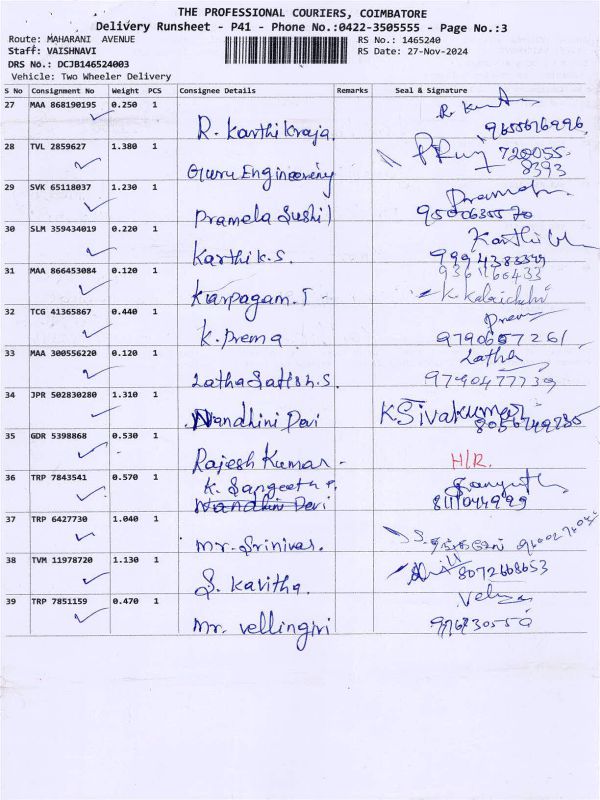 THE PROFESSIONAL COURIERS, COIMBATORE
Delivery Runsheet - P41 - Phone No.:0422-3505555 - Page No.:3
Route: MAHARANI AVENUE
RS No.: 1465240
Staff: VAISHNAVI
RS Date: 27-Nov-2024
DRS No.: DCJB146524003
Vehicle: Two Wheeler Delivery
S No Consignment No Weight PCS Consignee Details Remarks Seal & Signature
27 MAA 868190195 0.250 1 R. Karthikraja.
28 TVL 2859627 1.380 1 Guru Engineering 720055
8393
29 SVK 65118037 1.230 1 Pramela Sushil
30 SLM 359434019 0.220 1 Karthik.S. Karthik
31 MAA 866453084 0.120 1 Karpagam.T
32 TCG 41365867 0.440 1 K. Prema 9790657261
33 MAA 300556220 0.120 1 Latha Satish.S. Latha
9790477739
34 JPR 502830280 1.310 1 Nandhini Devi K Sivakumar
35 GDR 5398868 0.530 1 Rajesh Kumar - H/R.
36 TRP 7843541 0.570 1 K. Sangeetha P.
Nandhini Devi
37 TRP 6427730 1.040 1 Mr. Srinivas.
38 TVM 11978720 1.130 1 S. Kavitha. 8072608653
39 TRP 7851159 0.470 1 Mr. Vellingiri